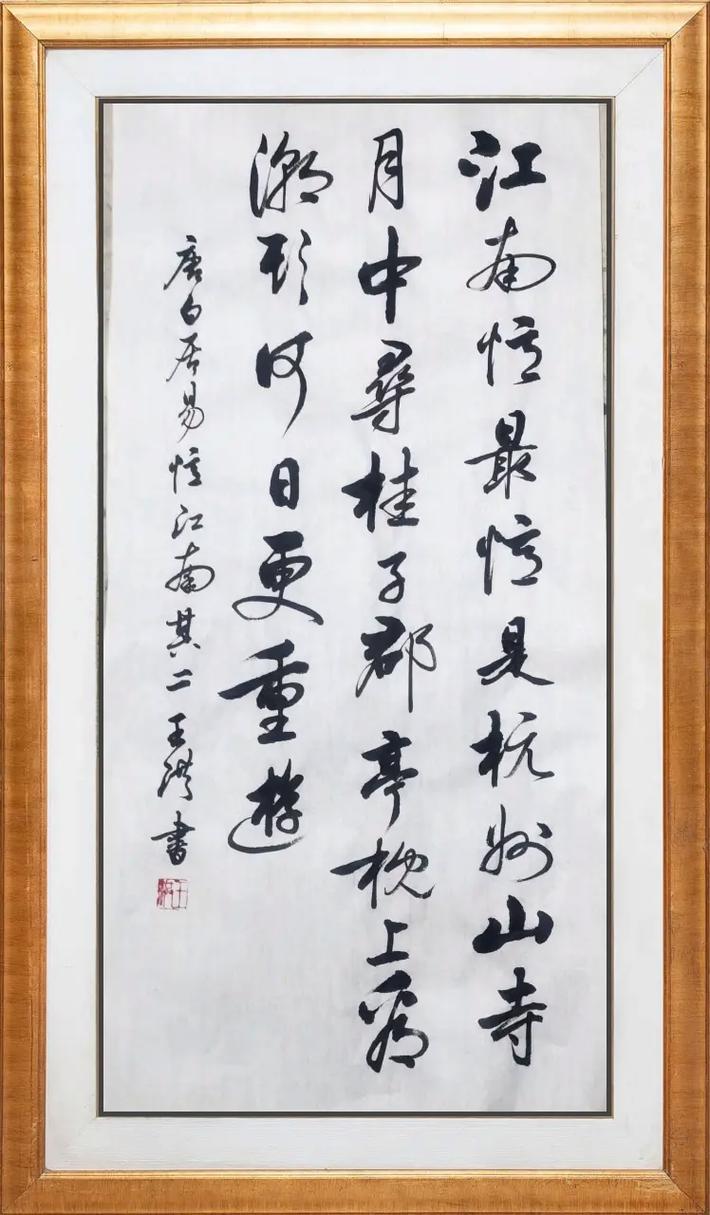 江南憶最憶是杭州山寺
月中尋桂子郡亭枕上看
潮頭何日更重遊
唐白居易憶江南其二王洪書